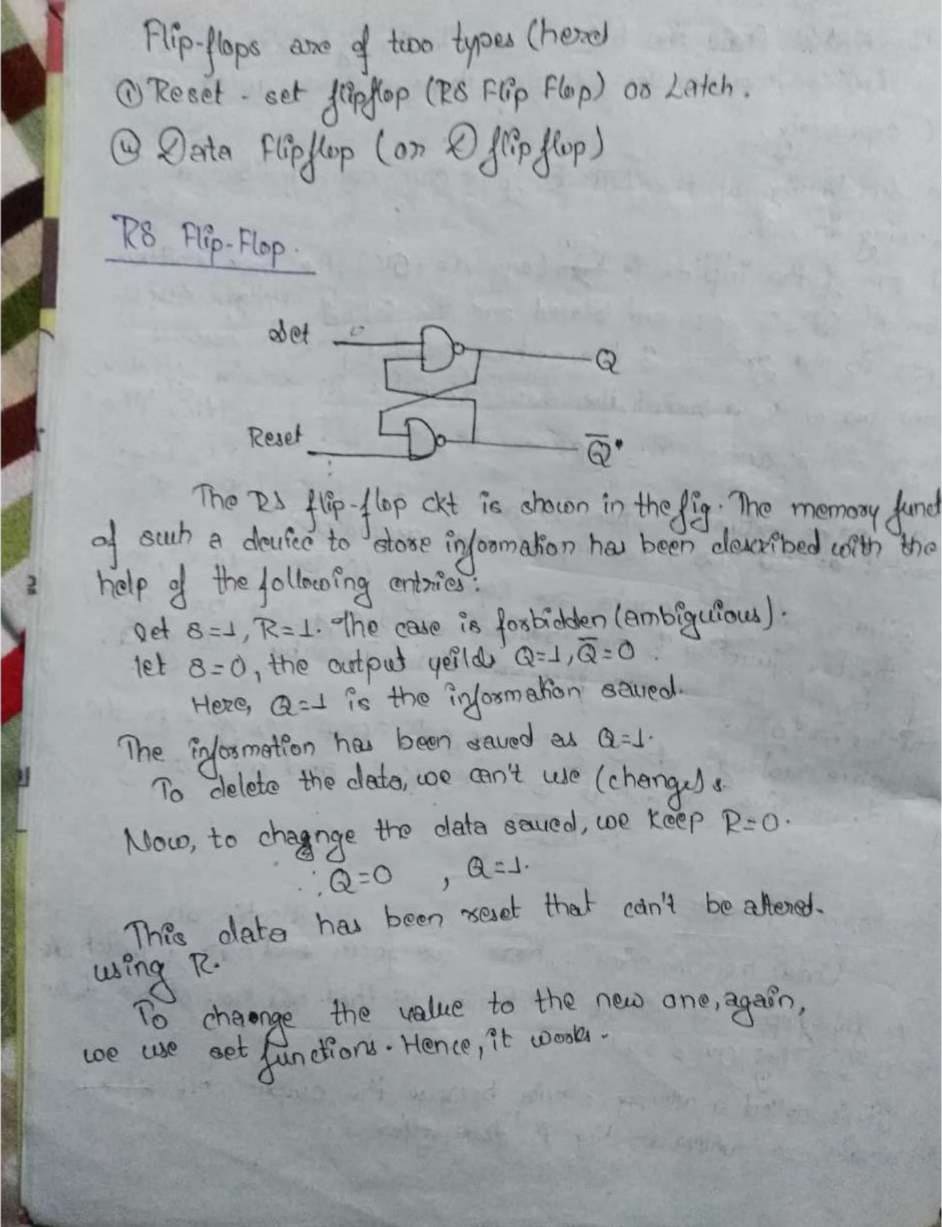 Flip-flops are of two types (here)
① Reset - set flipflop (RS Flip Flop) or Latch.
② Data Flipflop (or D flipflop)
RS Flip-Flop.
Set 0
Q
Reset
Q̅
The RS flip-flop ckt is shown in the fig. The memory funct
of such a device to store information has been described with the
help of the following entries:
Set S=1, R=1. The case is forbidden (ambiguious).
let S=0, the output yeilds Q=1, Q̅=0.
Here, Q=1 is the information saved.
The information has been saved as Q=1.
To delete the data, we can't use (change) s.
Now, to chagnge the data saved, we keep R=0.
∴ Q=0 , Q=1.
This data has been reset that can't be altered.
using R.
To chaenge the value to the new one, again,
we use set functions. Hence, it works.